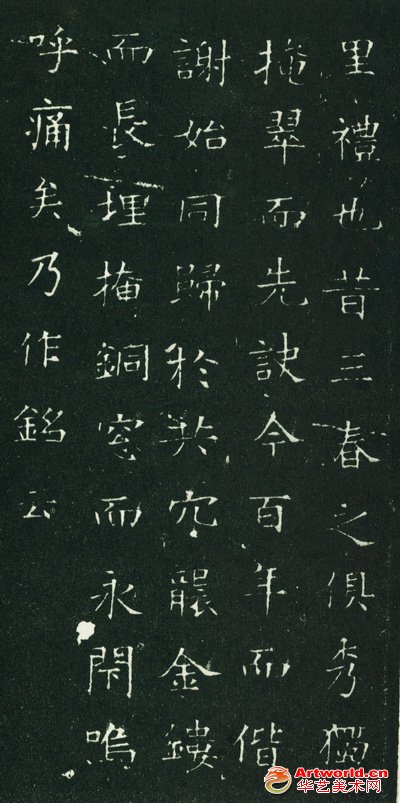 里禮也昔三春之俱秀獨
掩翠而先訣今百年而偕
謝始同歸於共穴金鏤
而長埋掩銅窓而永閇嗚
呼痛矣乃作銘云
Artworld.cn
华艺美术网